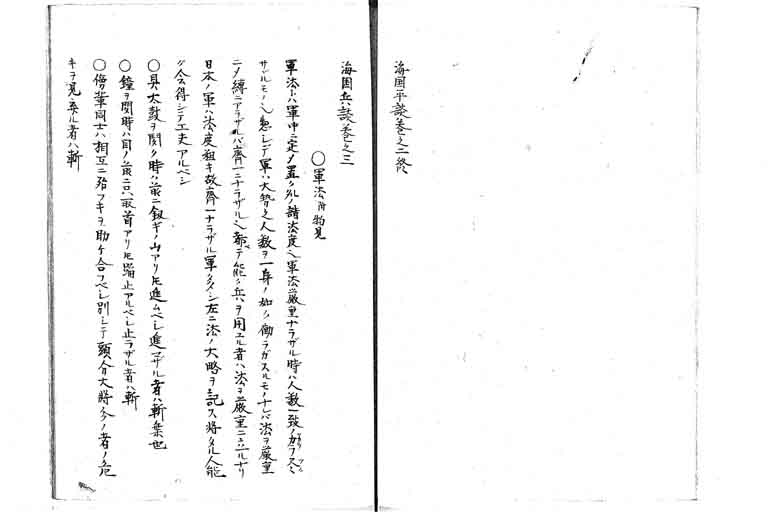 海国兵談巻之二終
海国兵談巻之三
○軍法附物見
軍法トハ軍中ニ定メ置ク処ノ諸法度也軍法厳重ナラザル時ハ人数一致ノ働ラスミ
サルモノ也惣シテ軍ハ大勢之人数ヲ一身ノ如ク働ラカスルモノナレバ法ヲ厳重
ニメ縛ニアラザレバ齊一ニナラザル也故ニ能ク兵ヲ用ユル者ハ法ヲ厳重ニ立ルナリ
日本ノ軍ハ法度粗キ故齊一ナラザル軍多シ左ニ法ノ大略ヲ記ス将タル人能
ク会得シテ工夫アルベシ
○具太鼓ヲ聞ク時ハ前ニ釼ギノ山アリ𪜈進ムベシ進マザル者ハ斬棄也
○鐘ヲ聞時ハ目ノ前ニ只取首アリ𪜈踏止アルベシ止ラザル者ハ斬
○傍輩同士ハ相互ニ殆フキヲ助ケ合フベシ別シテ頭分大将分ノ者ノ危
キヲ見棄ル者ハ斬